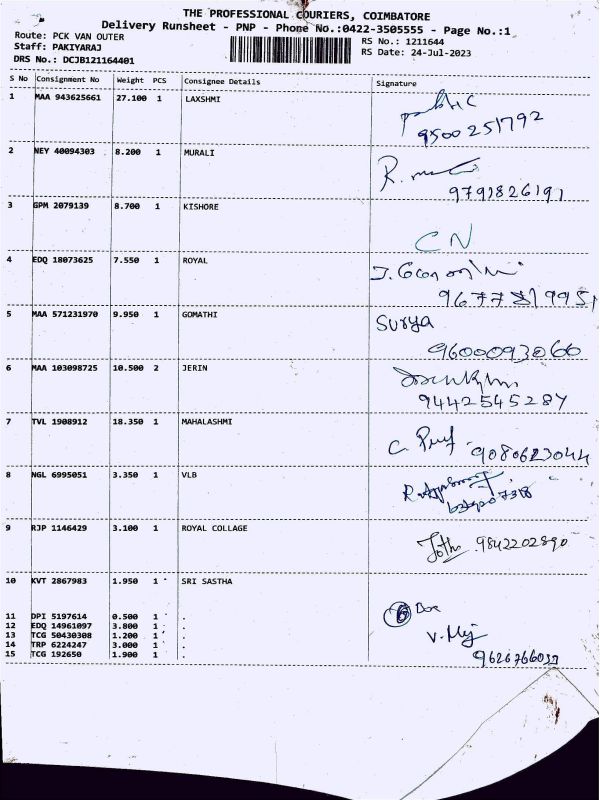 THE PROFESSIONAL COURIERS, COIMBATORE
Delivery Runsheet - PNP - Phone No.:0422-3505555 - Page No.:1
Route: PCK VAN OUTER
RS No.: 1211644
Staff: PAKIYARAJ
RS Date: 24-Jul-2023
DRS No.: DCJB121164401
S No Consignment No Weight PCS Consignee Details Signature
1 MAA 943625661 27.100 1 LAXSHMI
public
9500251792
2 NEY 40094303 8.200 1 MURALI
R.
9791826191
3 GPM 2079139 8.700 1 KISHORE
CN
4 EDQ 18073625 7.550 1 ROYAL
5 MAA 571231970 9.950 1 GOMATHI
Surya
9600093066
6 MAA 103098725 10.500 2 JERIN
9442545287
7 TVL 1908912 18.350 1 MAHALASHMI
C.
9080623044
8 NGL 6995051 3.350 1 VLB
9 RJP 1146429 3.100 1 ROYAL COLLAGE
9842202890
10 KVT 2867983 1.950 1 SRI SASTHA
11 DPI 5197614 0.500 1 .
6 Box
12 EDQ 14961097 3.800 1 .
13 TCG 50430308 1.200 1 .
V.
14 TRP 6224247 3.000 1 .
15 TCG 192650 1.900 1 .